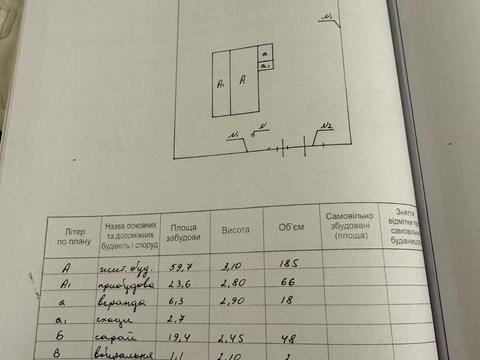 N1
а
А1 А а1
N1 N N2
Літер по плану
Назва основних та допоміжних будівель і споруд
Площа забудови
Висота
Об'єм
Самовільно збудовані (площа)
Зняття відмітки про самовільне будівництво
А жит. буд. 59,7 3,10 185
А1 прибудова 23,6 2,80 66
а веранда 6,3 2,90 18
а1 сходи 2,7
Б сарай 19,4 2,45 48
В вбиральня 1,1 2,10